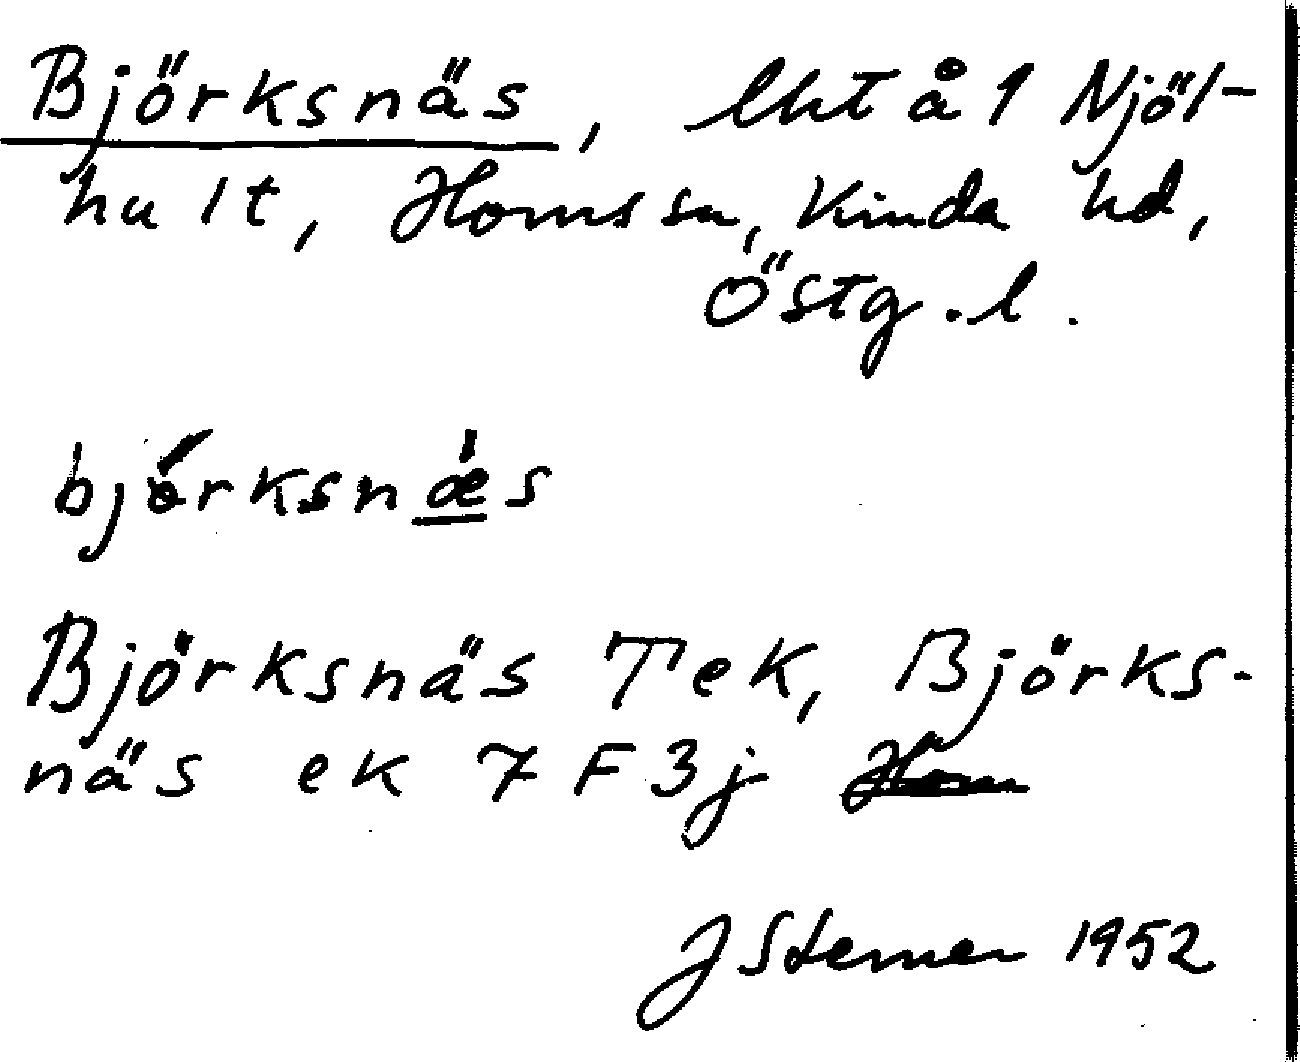 Björksnäs, lht å 1 Njöl-
hult, Horns sn, Kinda hd,
Östg. l.
bjö́rksnæ̀s
Björksnäs Tek, Björks-
näs ek 7 F 3j Horn
J Sterner 1952